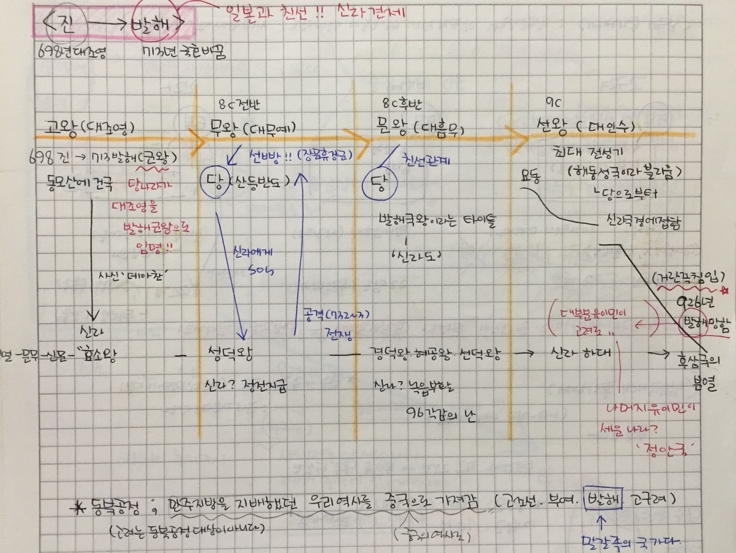 <진 → 발해>
일본과 친선!! 신라견제
698년 대조영
713년 국호바꿈
8C전반
8C후반
9C
고왕 (대조영)
무왕 (대무예)
문왕 (대흠무)
선왕 (대인수)
698 진 → 713발해 (군왕)
동모산에 건국
당나라가
대조영을
발해군왕으로
임명!!
사신 '대아찬'
신라
선빵!! (장문휴장군)
당 (산둥반도)
신라에게
SOS
공격(732~)
전쟁
친선관계
당
발해국왕이라는 타이틀
'신라도'
최대 전성기
(해동성국이라 불리움)
↳당으로부터
요동
신라국경에접함
(거란족침입)
926년
발해멸망
(대부분유민이
고려로!!)
문무-신문-효소왕
성덕왕
경덕왕. 혜공왕. 선덕왕
→ 신라 하대 →
후삼국의
분열
신라? 정전지급
신라? 녹읍부활
96각간의 난
나머지유민이
세운나라?
'정안국'
* 동북공정 ; 만주지방을 지배했던 우리역사를 중국으로 가져감 (고조선. 부여. 발해 고구려)
(고려는 동북공정대상이아니다)
(중의역사로)
말갈족의 국가다.